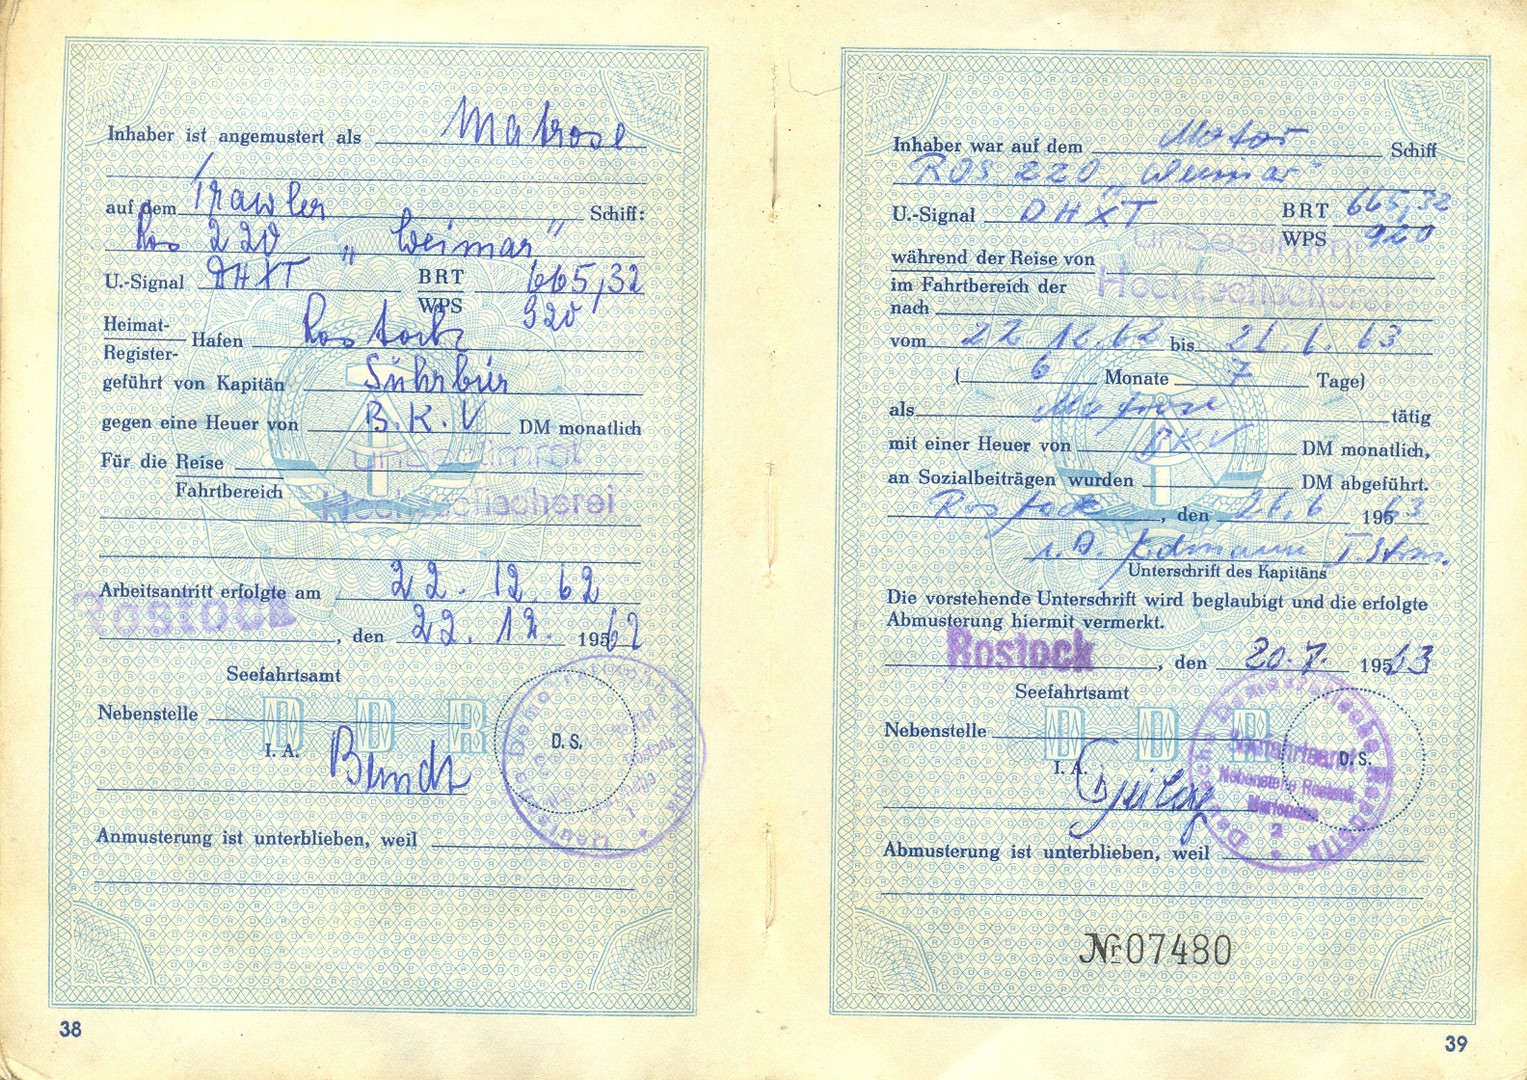 Inhaber ist angemustert als Matrose
auf dem Trawler Schiff:
Ros 220 „Weimar"
U.-Signal DHXT BRT 665,32
WPS 920
Heimat-
Register- Hafen Rostock
geführt von Kapitän Sührbür
gegen eine Heuer von B.K.V DM monatlich
Für die Reise unbestimmt
Fahrtbereich Hochseefischerei
Arbeitsantritt erfolgte am 22. 12. 62
Rostock, den 22. 12. 1962
Seefahrtsamt
Nebenstelle
DDR
I. A. Berndt
D. S.
Anmusterung ist unterblieben, weil
38
Inhaber war auf dem Motor Schiff
ROS 220 „Weimar"
U.-Signal DHXT BRT 665,32
WPS 920
während der Reise von unbestimmt
im Fahrtbereich der Hochseefischerei
nach
vom 22 12. 62 bis 21. 6. 63
( 6 Monate 7 Tage)
als Matrose tätig
mit einer Heuer von BKV DM monatlich,
an Sozialbeiträgen wurden DM abgeführt.
Rostock, den 26. 6 1963
i. A. Erdmann I Strm.
Unterschrift des Kapitäns
Die vorstehende Unterschrift wird beglaubigt und die erfolgte
Abmusterung hiermit vermerkt.
Rostock, den 20. 7. 1963
Seefahrtsamt
Nebenstelle
DDR
I. A.
D. S.
Deutsche Demokratische Republik
Seefahrtsamt
Nebenstelle Rostock
2
Abmusterung ist unterblieben, weil
Nr 07480
39